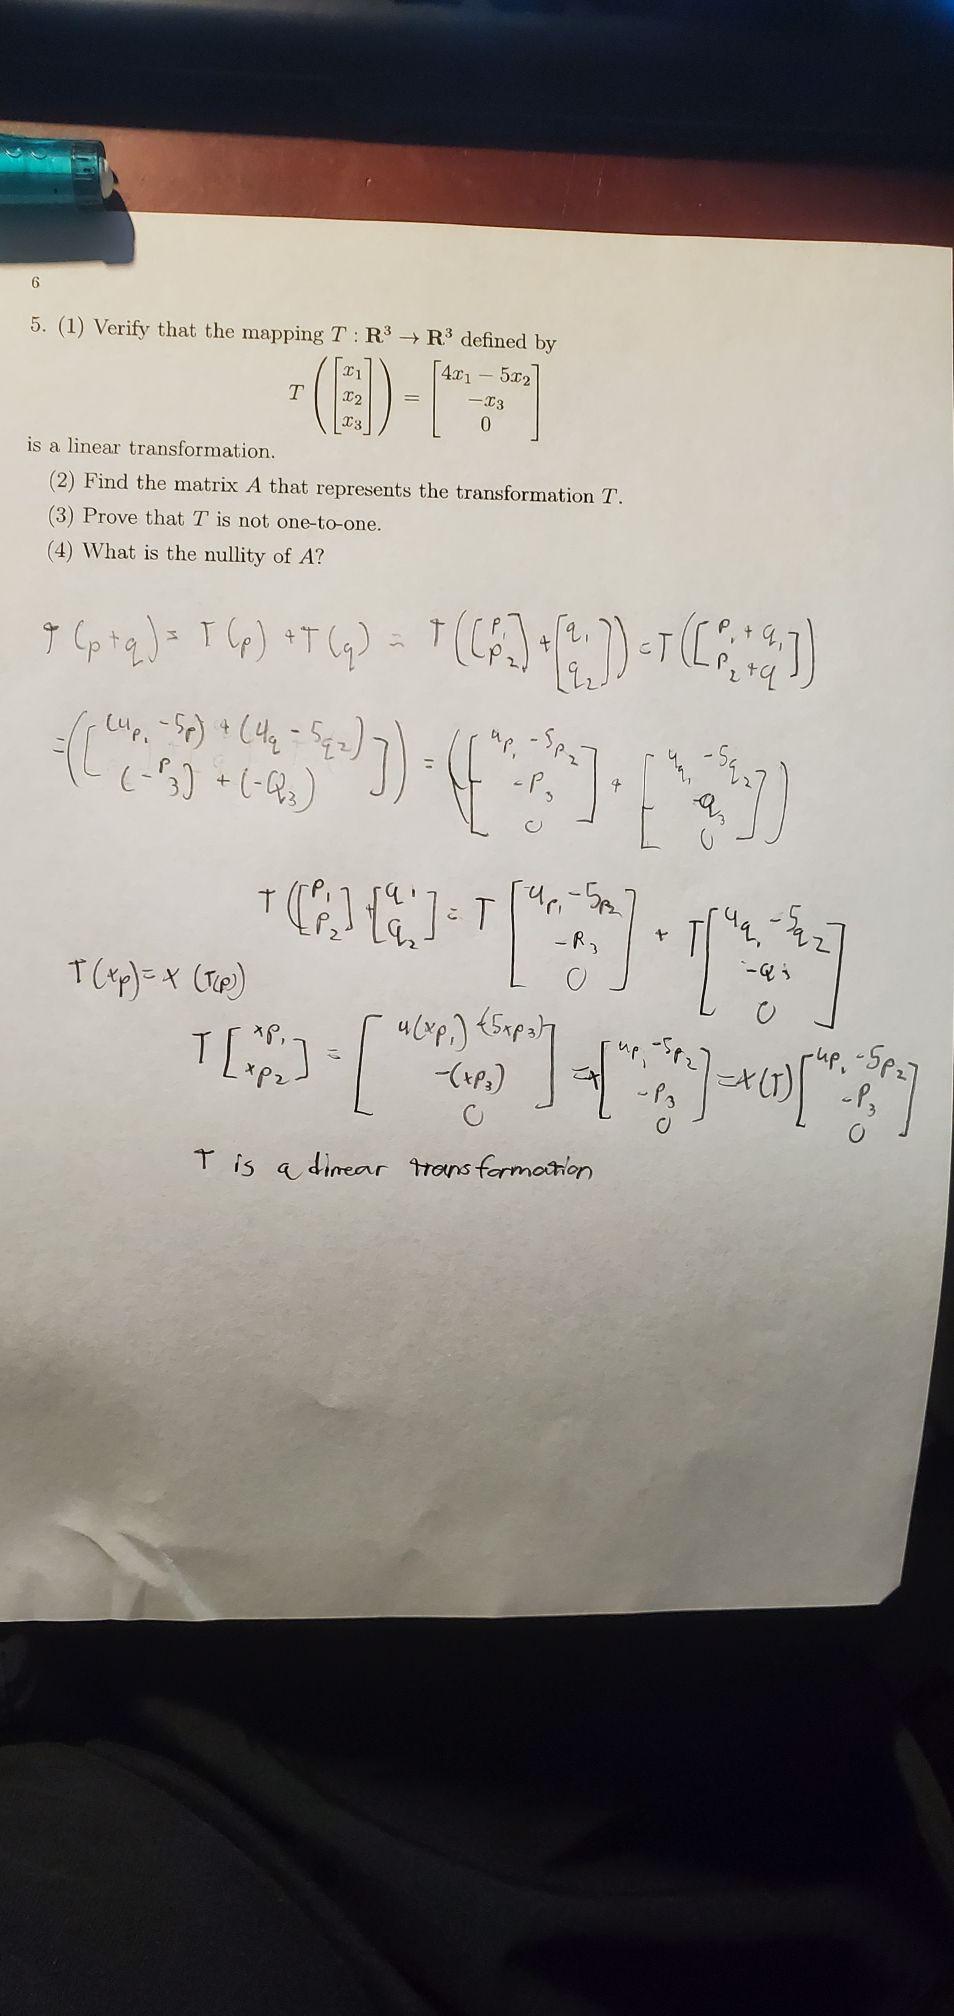 6
5. (1) Verify that the mapping T : R³ → R³ defined by
T ([x₁ x₂ x₃]) = [4x₁ − 5x₂ −x₃ 0]
is a linear transformation.
(2) Find the matrix A that represents the transformation T.
(3) Prove that T is not one-to-one.
(4) What is the nullity of A?
T(p+q) = T(p) + T(q) = T([p₁ p₂] + [q₁ q₂]) = T([p₁ + q₁ p₂ + q])
= ([(4p₁ − 5p) + (4q − 5q2) (−p₃) + (−Q₃)]) = ([4p₁ − 5p₂ −p₃ 0] + [4q₁ − 5q₂ −q₃ 0])
T([p₁ p₂] + [q₁ q₂] = T[4p₁ − 5p₂ −P₃ 0] + T[4q₁ − 5q2 −q₃ 0]
T(xp) = x (T(p))
T[xp₁ xp₂] = [4(xp₁) (5xp₃) −(xp₃) 0] = x[4p₁ − 5p₂ −p₃ 0] = x(T)[4p₁ − 5p₂ −p₃ 0]
T is a linear transformation